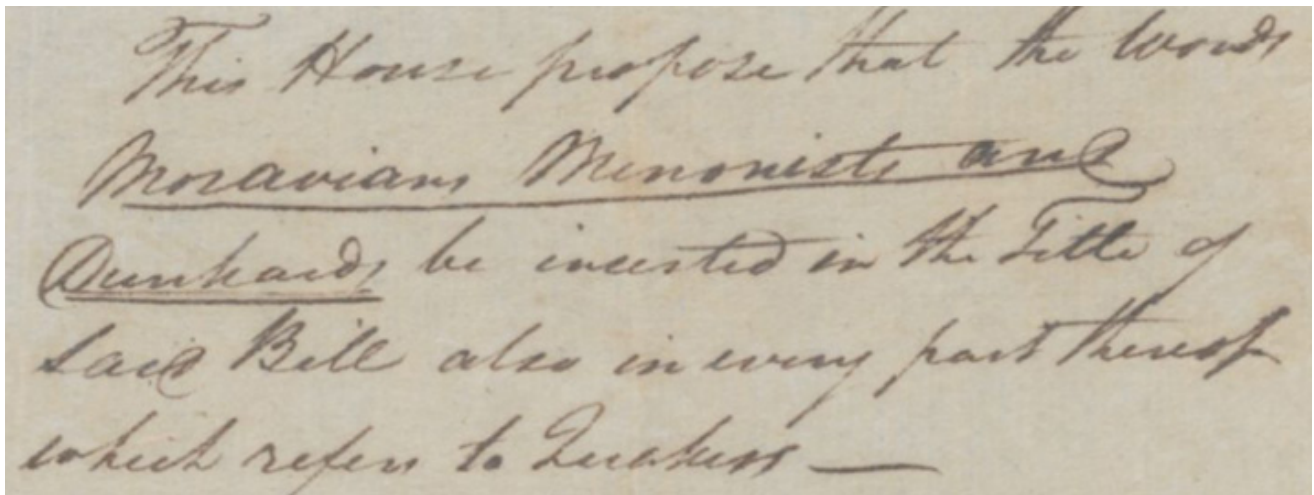 This House propose that the Words
Moravians Menonists and
Dunkards be inserted in the Title of
said Bill also in every part thereof
which refers to Quakers —